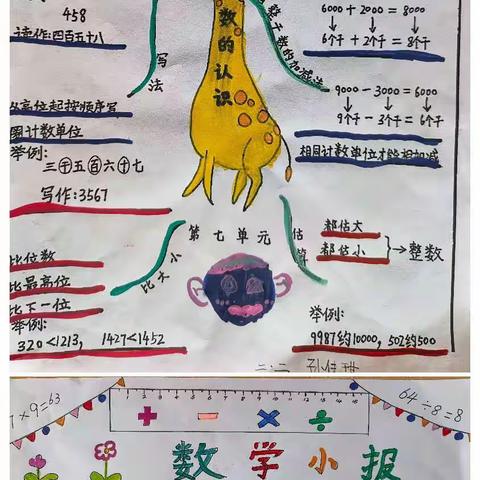 458
读作:四百五十八
写法
数的认识
整千数的加减法
6000+2000=8000
6个千+2个千=8个千
9000-3000=6000
9个千-3个千=6个千
相同计数单位才能相加减
从高位起按顺序写
圈计数单位
举例:
三千五百六十七
写作:3567
第七单元
比大小
估算
都估大
都估小
整数
比位数
比最高位
比下一位
举例:
320<1213, 1427<1452
举例:
9987约10000, 502约500
二.二
7×9=63
+ - × ÷
64÷8=8
数学小报